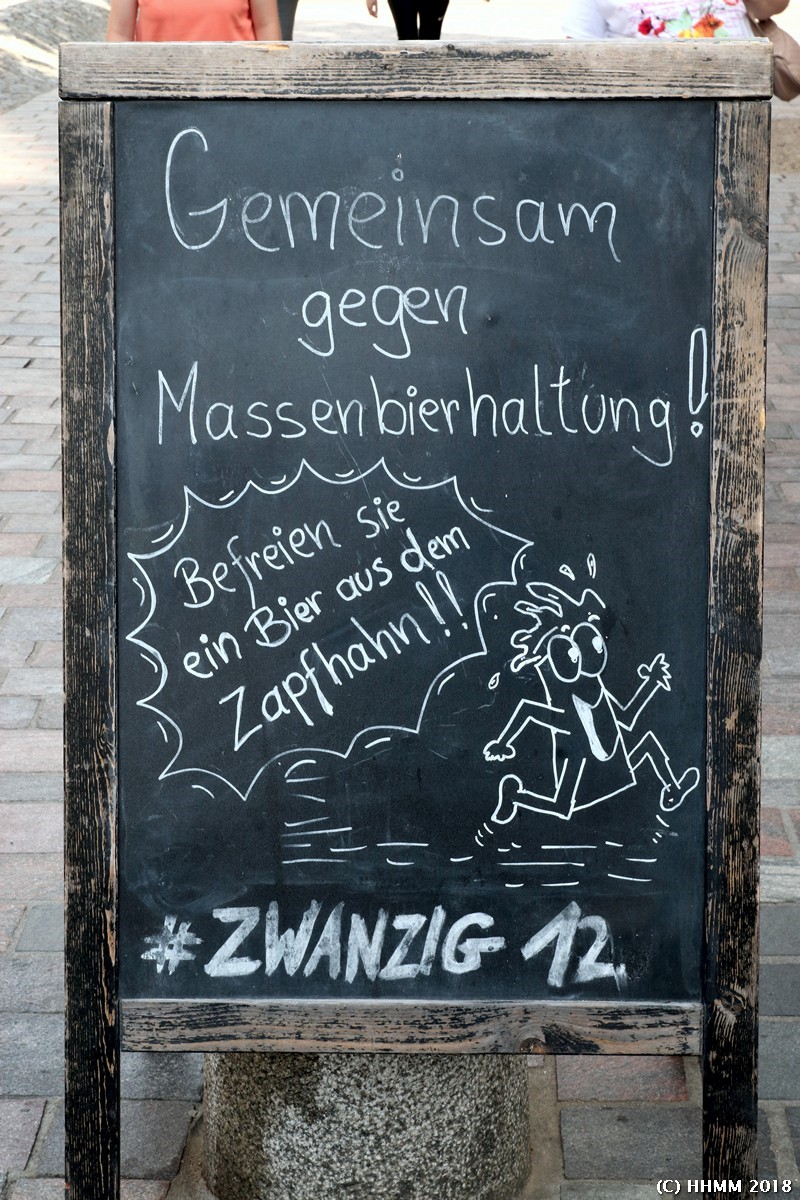 Gemeinsam
gegen
Massenbierhaltung!
Befreien sie
ein Bier aus dem
Zapfhahn!!
#ZWANZIG 12.
(C) HHMM 2018